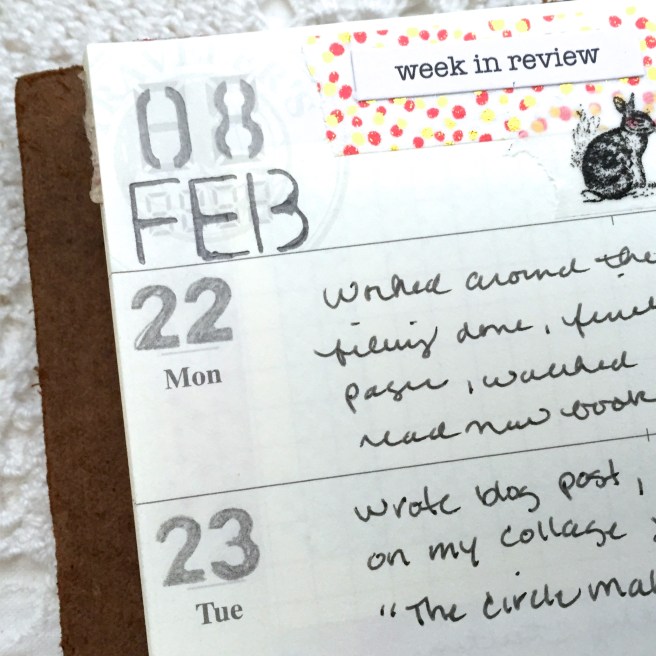 week in review
08
FEB
22
Mon
Worked around the
filing done, finis
pages, watched
read new book
23
Tue
wrote blog post,
on my collage
"The Circle Mak